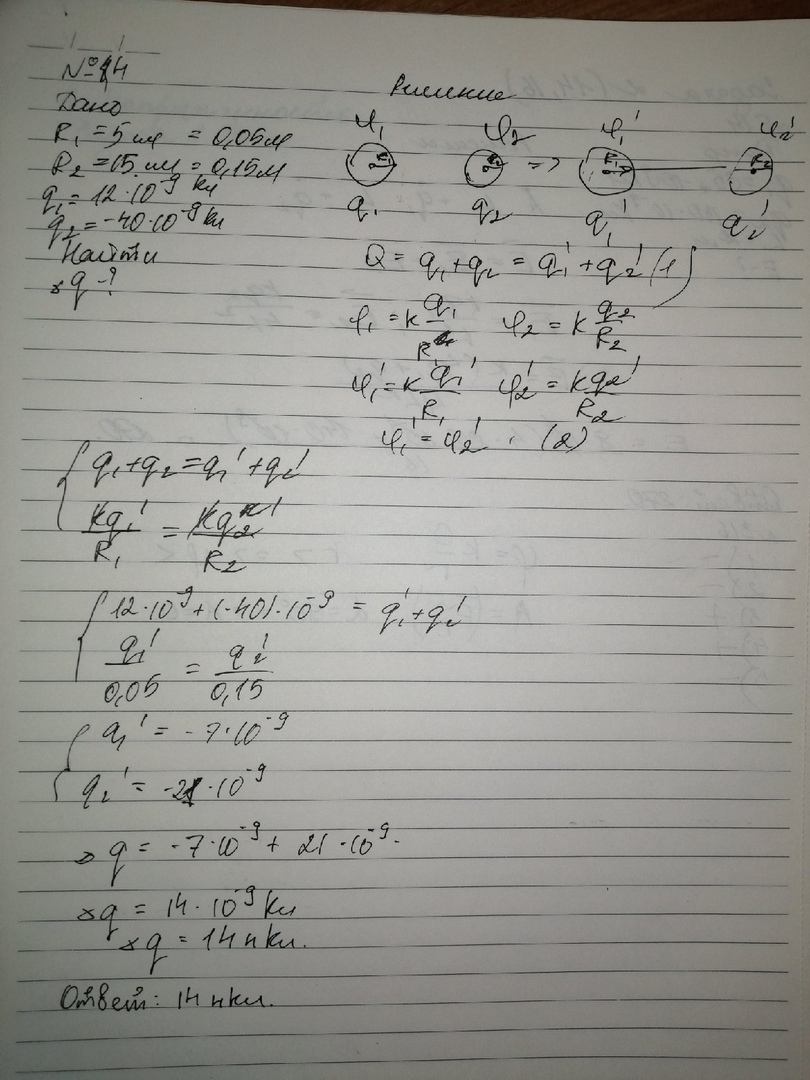 №14
Дано
Решение
R₁ = 5 см = 0,05м
R₂ = 15 см = 0,15м
q₁ = 12·10⁻⁹ Кл
q₂ = -40·10⁻⁹ Кл
Найти
q -?
φ₁ φ₂ φ₁' φ₂'
R₁ R₂ => R₁ R₂
q₁ q₂ q₁' q₂'
Q = q₁ + q₂ = q₁' + q₂' (1)
φ₁ = k q₁/R₁ φ₂ = k q₂/R₂
φ₁' = k q₁'/R₁ φ₂' = k q₂'/R₂
φ₁' = φ₂' , (2)
{ q₁ + q₂ = q₁' + q₂'
kq₁'/R₁ = kq₂'/R₂
{ 12·10⁻⁹ + (-40)·10⁻⁹ = q₁' + q₂'
q₁'/0,05 = q₂'/0,15
{ q₁' = -7·10⁻⁹
q₂' = -21·10⁻⁹
q = -7·10⁻⁹ + 21·10⁻⁹.
q = 14·10⁻⁹ Кл
q = 14 нКл.
Ответ: 14 нКл.